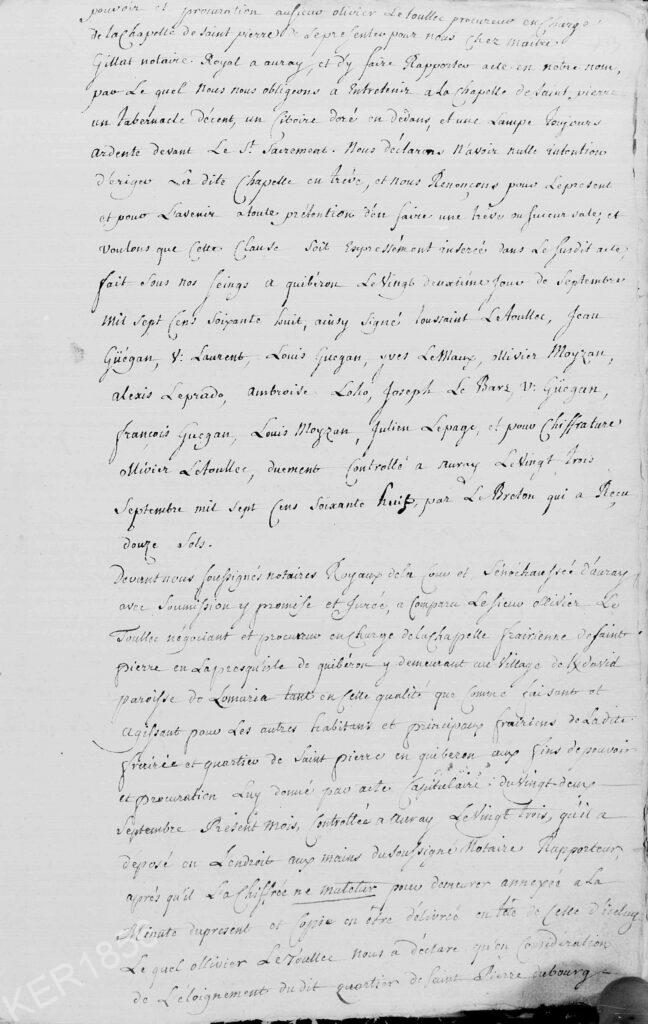 pouvoir et procuration au sieur olivier Letoullec procureur en Charge
de la Chapelle de saint pierre de Lepresenter pour nous Chez maitre
Gillat notaire Royal a auray, et d'y faire Rapporter acte en notre nom,
par Le quel Nous nous obligeons a Entretenir a La Chapelle de Saint pierre
un Tabernacle décent, un Ciboire doré en dedans, et une Lampe toujours
ardente devant Le St. Sacrement. Nous déclarons N'avoir nulle intention
d'eriger La dite Chapelle en trève, et nous Renonçons pour Lepresent
et pour L'avenir a toute prétention d'en faire une trève ou succursale, et
voulons que Cette Clause soit Expressément insérée dans Le susdit acte,
fait sous nos seings a quibéron Le Vingt deuxième Jour de Septembre
Mil sept Cens soixante huit, ainsy signé toussaint Letoullec, Jean
Güegan, V: Laurent, Louis Guegan, yves LeMaux, ollivier Moyzan,
alexis Leprado, ambroise Loho, Joseph Le Bare, V: Güegan,
françois Guegan, Louis Moyzan, Julien Lepage, et pour Chiffrature
ollivier Letoullec, duement Controllé a auray Le Vingt trois
Septembre mil sept Cens soixante huit, par Le Breton qui a Reçu
douze sols.
Devant nous soussignés notaires Royaux de la Cour et Sénéchaussée d'auray
avec soumission y promise et Jurée, a Comparu Le sieur ollivier Le
Toullec négociant et procureur en Charge de la Chapelle frairienne de saint
pierre en La presqu'isle de quibéron y demeurant au Village de Kdavid
paroisse de Lomaria tant en Cette qualité que Comme faisant et
agissant pour Les autres habitans et principaux frairiens de Ladite
frairie et quartier de Saint pierre en quiberon aux fins de pouvoir
et procuration Luy donné par acte Capitulaire du vingt deux
Septembre Présent mois, Controllée a auray Le Vingt Trois, qu'il a
déposé en Lendroit aux mains du soussigné Notaire Rapporteur,
après qu'il La Chiffrée ne mutetur pour demeurer annexée a La
Minute du present et Copie en être délivrée en tête de Cette d'iceluy
Le quel ollivier Le Toullec Nous a déclaré qu'en Considération
de L'eloignement du dit quartier de Saint Pierre du bourg
KER1856